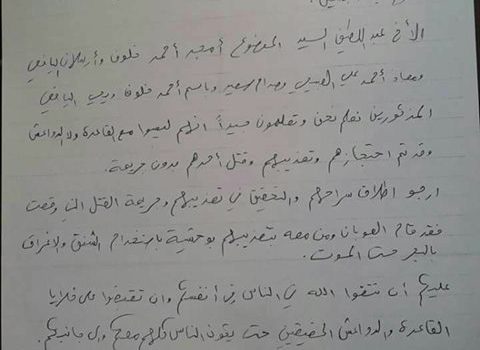 الأخ عبد اللطيف السيد الموضوع أمجد أحمد فلوق وأرسلان اليافعي
ومعاذ أحمد علي وصدام سعيد وباسم أحمد فلوق ويحيى اليافعي
المذكورين نعلم نحن وتعلمون جيداً انهم ليسوا مع القاعدة ولا الدواعش
وقد تم احتجازهم وتعذيبهم وقتل أحدهم بدون جريمة.
ارجو اطلاق سراحهم والتحقيق في تعذيبهم وجريمة القتل التي وقعت
فقد قام العوبان ومن معه بتعذيبهم بوحشية باستخدام الشنق والاغراق
بالبحر حتى الموت.
عليكم أن تتقوا الله في الناس في أنفسكم وان تقبضوا على خلايا
القاعدة والدواعش الحقيقيين حتى يكون الناس كلهم معكم وإلى جانبكم.